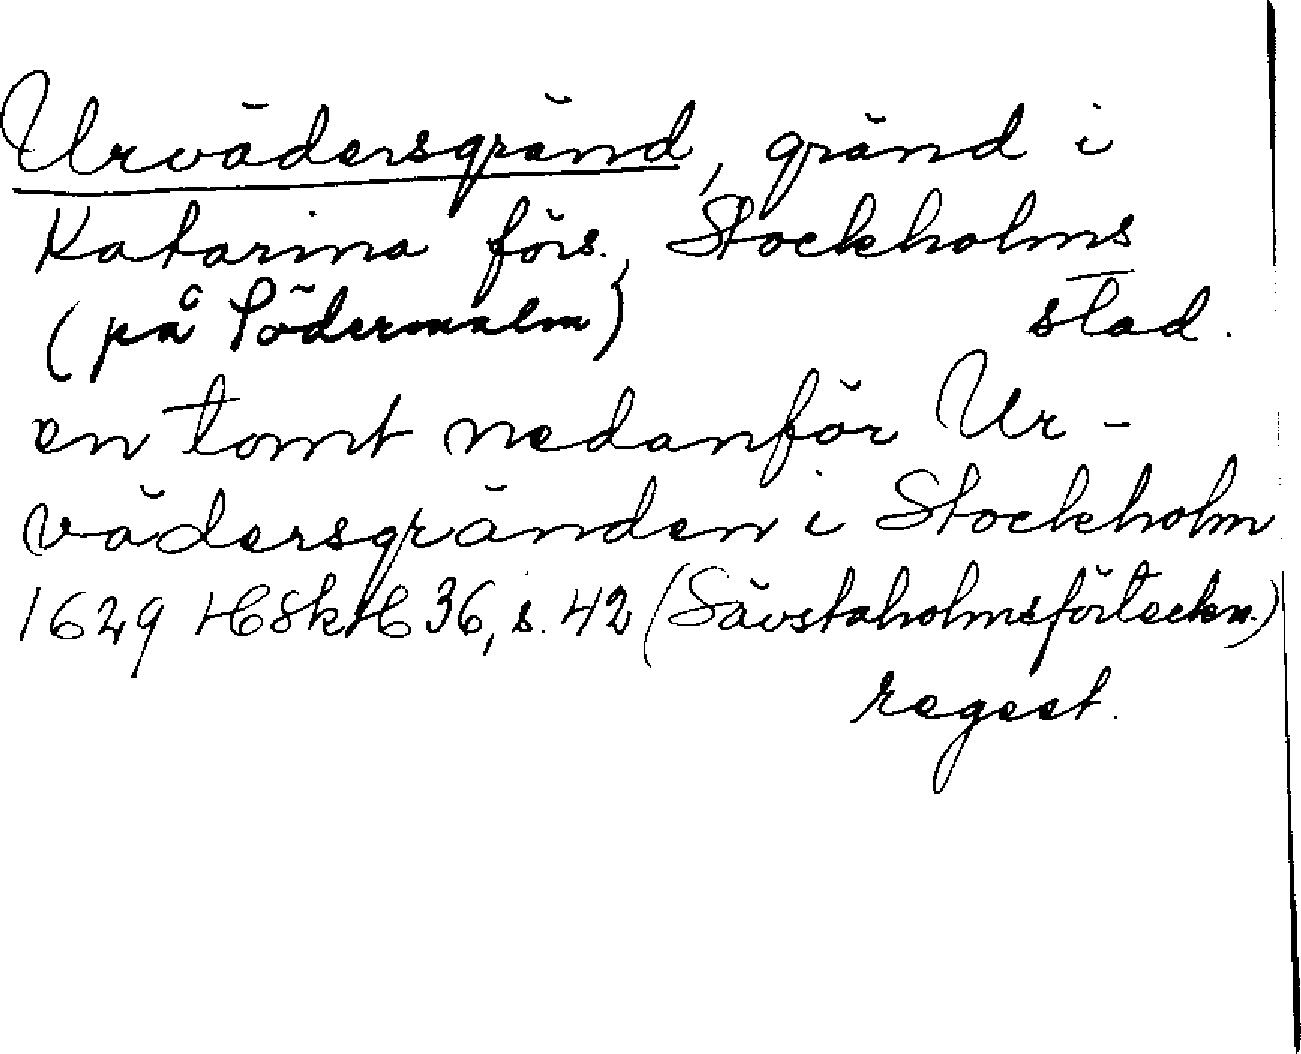 Urvädersgränd, gränd i
Katarina förs., Stockholms
(på Södermalm) stad.
en tomt nedanför Ur-
vädersgränden i Stockholm
1629 HSkH 36, s. 42 (Sävstaholmsförteckn.)
regest.